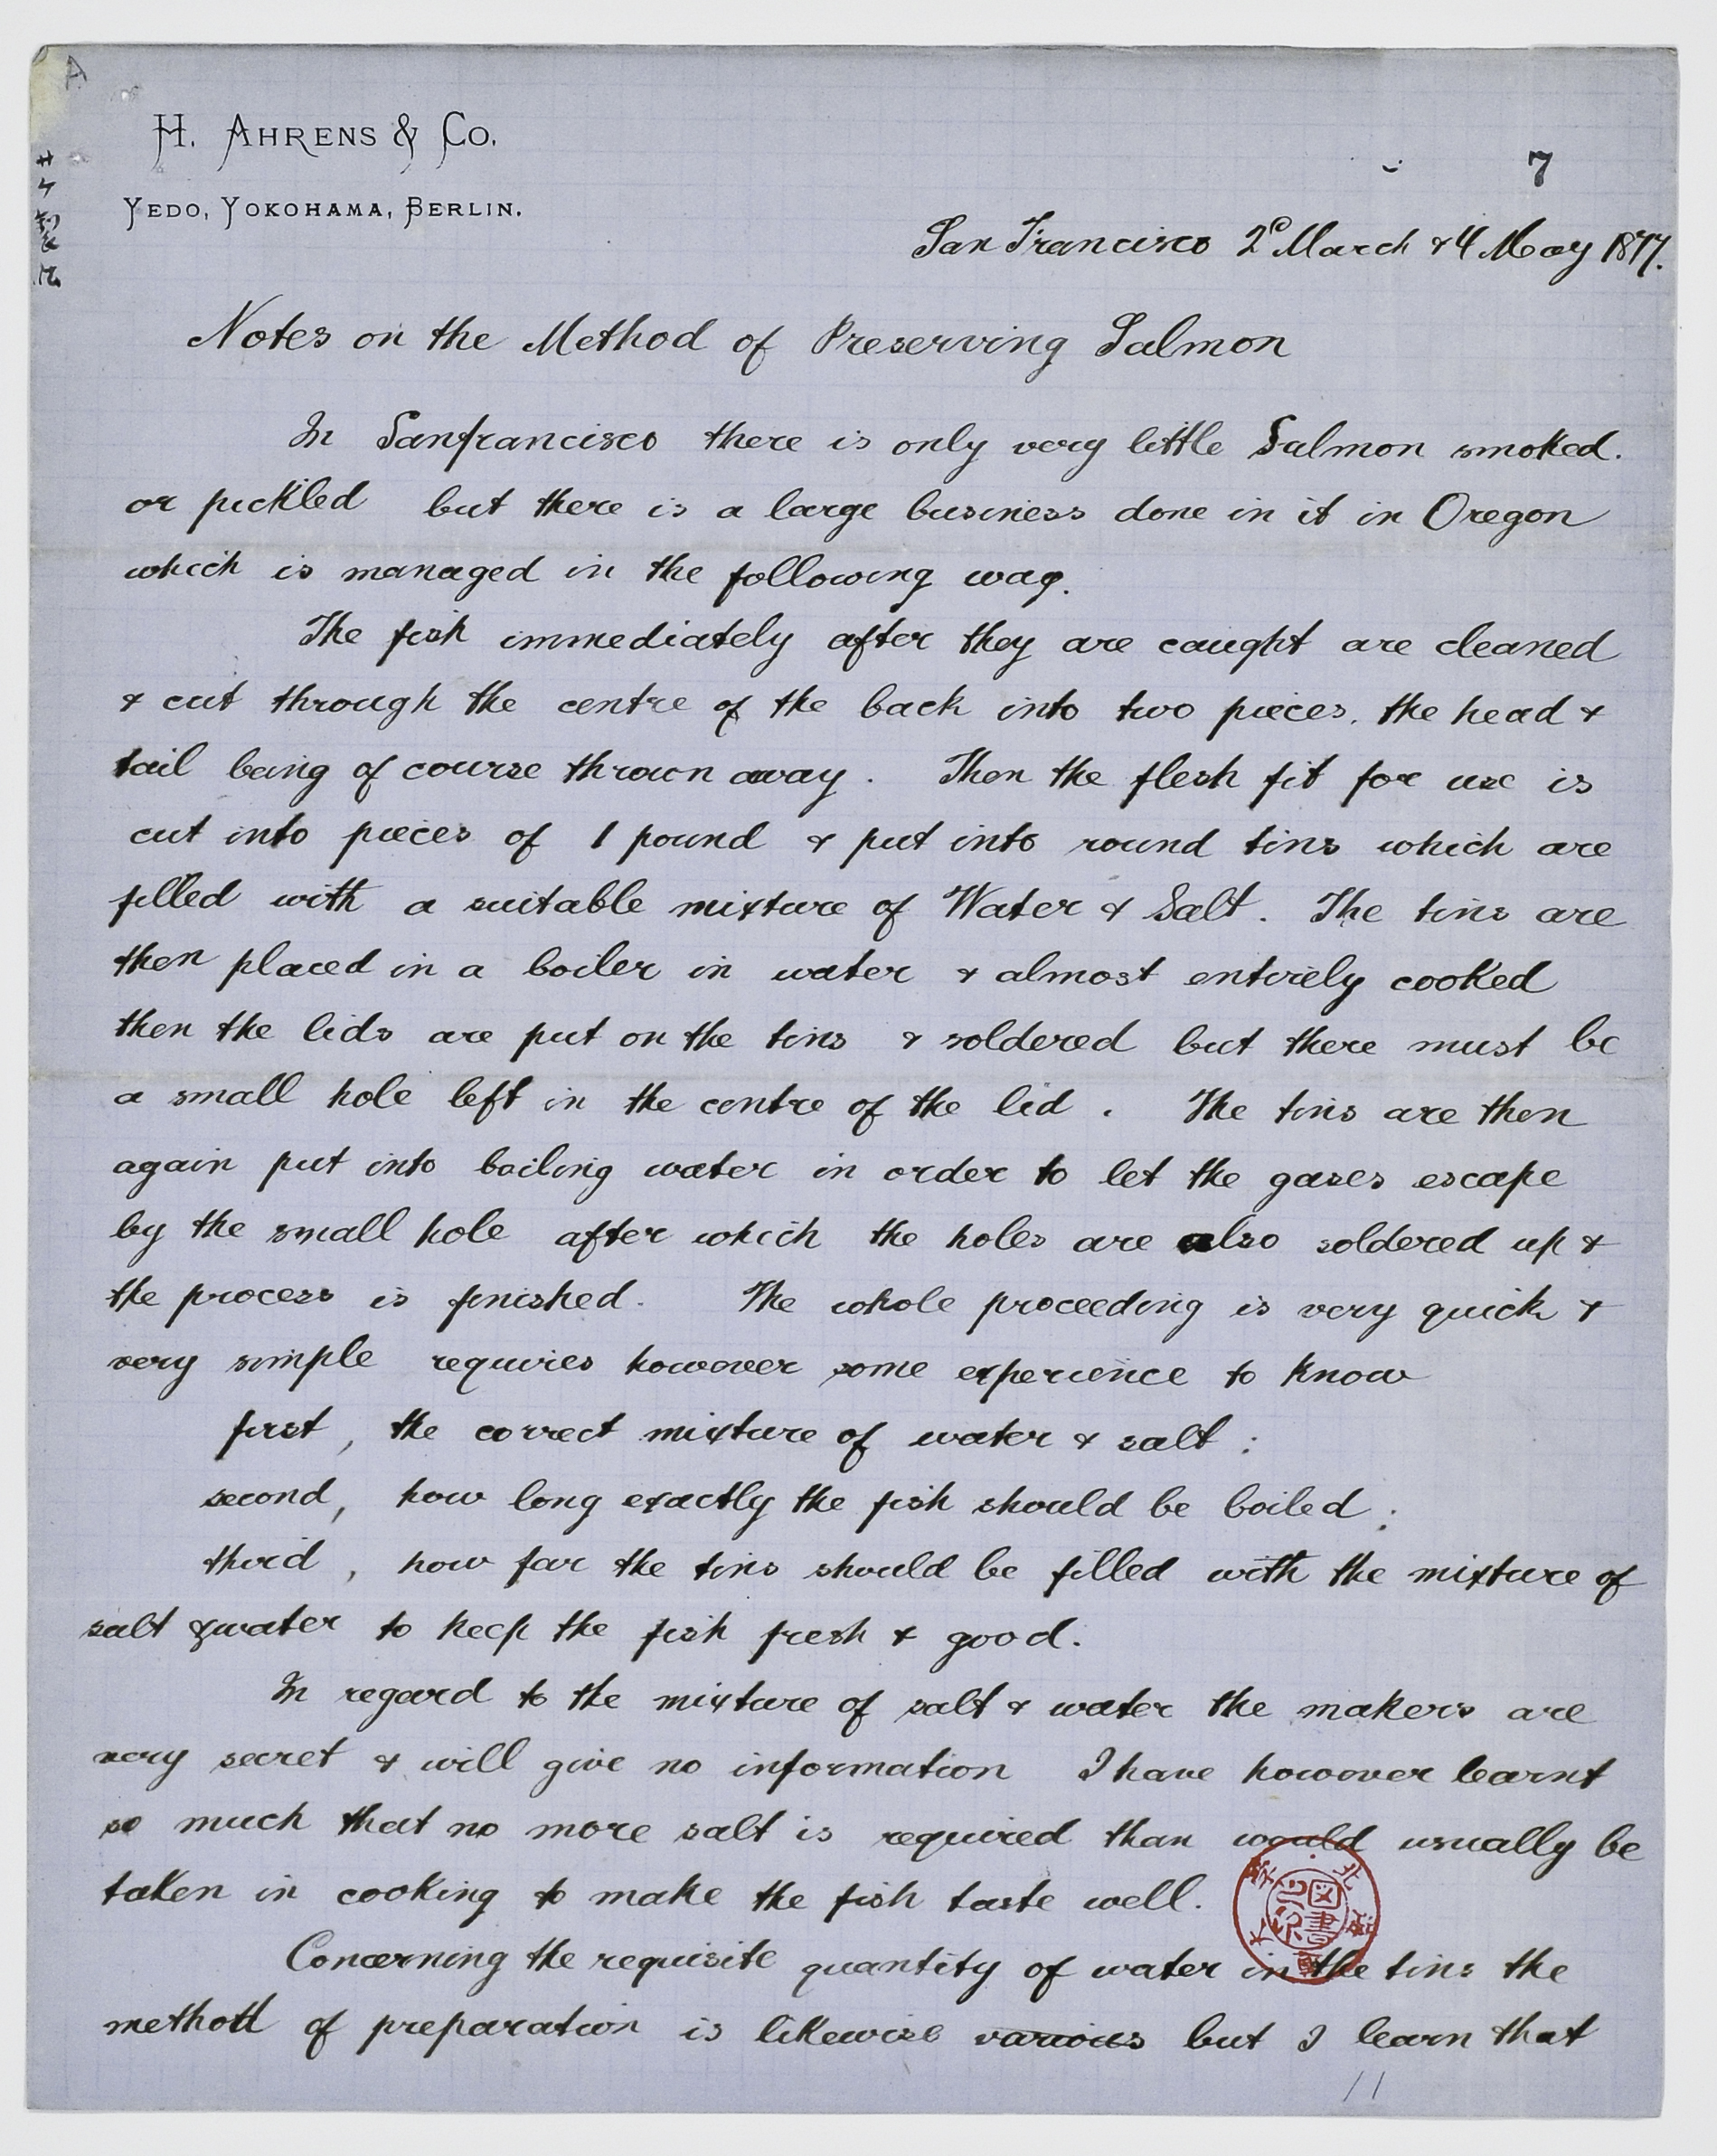 A
H. AHRENS & CO.
YEDO, YOKOHAMA, BERLIN.
7
San Francisco 2d March & 4 May 1877.
Notes on the Method of Preserving Salmon
In Sanfrancisco there is only very little Salmon smoked.
or pickled but there is a large business done in it in Oregon
which is managed in the following way.
The fish immediately after they are caught are cleaned
& cut through the centre of the back into two pieces, the head &
tail being of course thrown away. Then the flesh fit for use is
cut into pieces of 1 pound & put into round tins which are
filled with a suitable mixture of Water & Salt. The tins are
then placed in a boiler in water & almost entirely cooked
then the lids are put on the tins & soldered but there must be
a small hole left in the centre of the lid. The tins are then
again put into boiling water in order to let the gases escape
by the small hole after which the holes are also soldered up &
the process is finished. The whole proceeding is very quick &
very simple requires however some experience to know
first, the correct mixture of water & salt:
second, how long exactly the fish should be boiled;
third, how far the tins should be filled with the mixture of
salt & water to keep the fish fresh & good.
In regard to the mixture of salt & water the makers are
very secret & will give no information I have however learnt
so much that no more salt is required than would usually be
taken in cooking to make the fish taste well.
Concerning the requisite quantity of water in the tins the
method of preparation is likewise various but I learn that
11